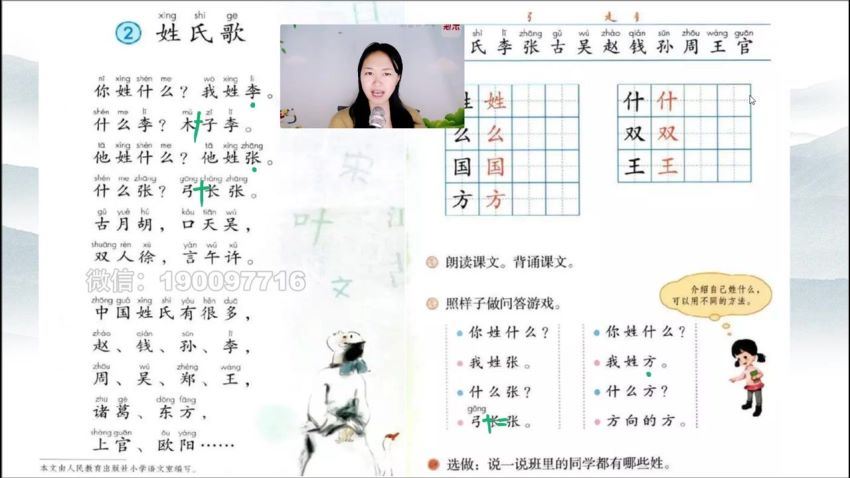 xìng shì gē
2 姓氏歌
nǐ xìng shén me wǒ xìng lǐ
你姓什么？我姓李。
shén me lǐ mù zǐ lǐ
什么李？木子李。
tā xìng shén me tā xìng zhāng
他姓什么？他姓张。
shén me zhāng gōng cháng zhāng
什么张？弓长张。
gǔ yuè hú kǒu tiān wú
古月胡，口天吴，
shuāng rén xú yán wǔ xǔ
双人徐，言午许。
微信：190097716
zhōng guó xìng shì yǒu hěn duō
中国姓氏有很多，
zhào qián sūn lǐ
赵、钱、孙、李，
zhōu wú zhèng wáng
周、吴、郑、王，
zhū gě dōng fāng
诸葛、东方，
shàng guān ōu yáng
上官、欧阳……
本文由人民教育出版社小学语文室编写。
宋
叶
江
文
shì lǐ zhāng gǔ wú zhào qián sūn zhōu wáng guān
氏李张古吴赵钱孙周王官
姓姓
么么
国国
方方
什什
双双
王王
朗读课文。背诵课文。
照样子做问答游戏。
介绍自己姓什么，
可以用不同的方法。
你姓什么？
我姓张。
什么张？
gōng
弓长张。
你姓什么？
我姓方。
什么方？
方向的方。
选做：说一说班里的同学都有哪些姓。